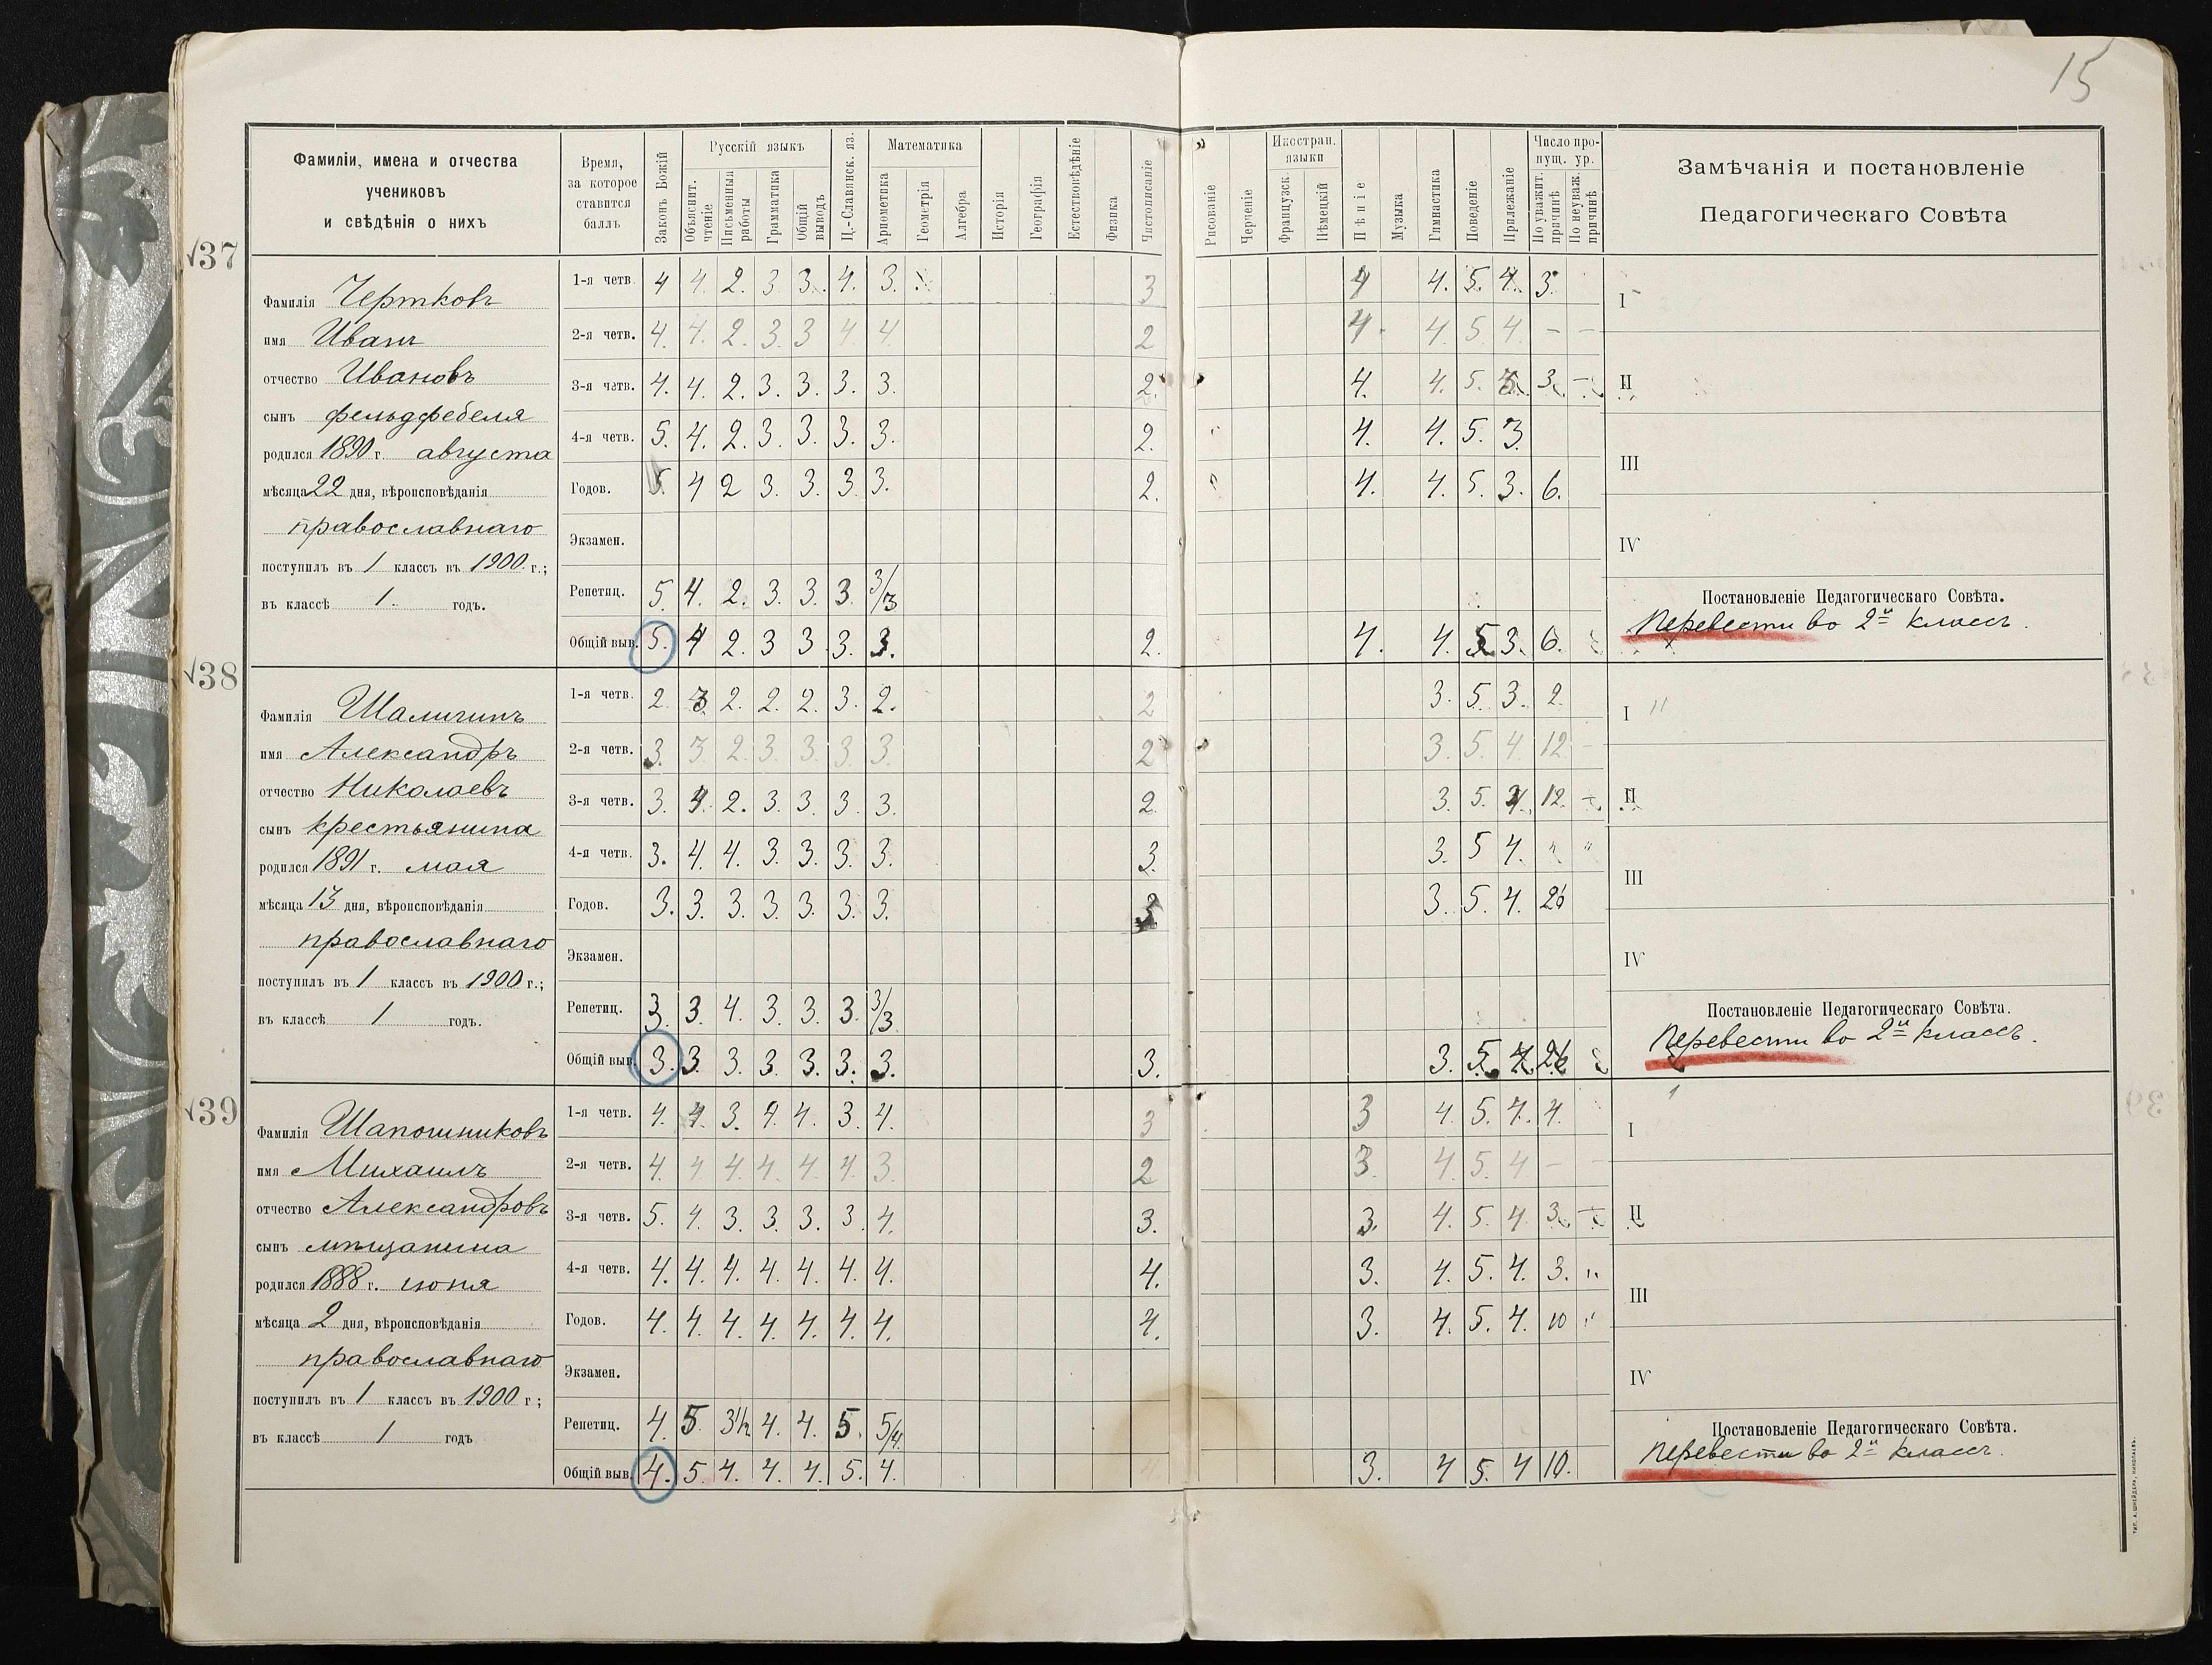 15
Фамиліи, имена и отчества
учениковъ
и свѣдѣнія о нихъ
Время,
за которое
ставится
баллъ
Законъ Божій
Русскій языкъ
Объяснит. чтеніе
Письменныя работы
Грамматика
Общій выводъ
Ц.-Славянск. яз.
Математика
Ариѳметика
Геометрія
Алгебра
Исторія
Географія
Естествовѣдѣніе
Физика
Чистописаніе
Рисованіе
Черченіе
Иностран. языки
Французск.
Нѣмецкій
Пѣніе
Музыка
Гимнастика
Поведеніе
Прилежаніе
Число пропущ. ур.
По уважит. причинѣ
По неуваж. причинѣ
Замѣчанія и постановленіе
Педагогическаго Совѣта
37
Фамилія Чертковъ
имя Иванъ
отчество Ивановъ
сынъ фельдфебеля
родился 1890 г. августа
мѣсяца 22 дня, вѣроисповѣданія
православнаго
поступилъ въ 1 классъ въ 1900 г.;
въ классѣ 1. годъ.
1-я четв. 4 4. 2. 3. 3. 4. 3. 3 4 4. 5. 4. 3.
2-я четв. 4. 4. 2. 3. 3 4 4. 2 4. 4. 5 4. – –
3-я четв. 4. 4. 2. 3. 3. 3. 3. 2. 4. 4. 5. 3. –
4-я четв. 5. 4. 2. 3. 3. 3. 3. 2. 4. 4. 5. 3.
Годов. 5. 4 2 3. 3. 3. 3. 2. 4. 4. 5. 3. 6.
Экзамен.
Репетиц. 5. 4. 2. 3. 3. 3. 3/3
Общій выв. 5. 4 2. 3 3 3. 3. 2. 4. 4. 5 3. 6.
I
II
III
IV
Постановленіе Педагогическаго Совѣта.
Перевести во 2й классъ.
38
Фамилія Шалигинъ
имя Александръ
отчество Николаевъ
сынъ крестьянина
родился 1891 г. мая
мѣсяца 13 дня, вѣроисповѣданія
православнаго
поступилъ въ 1 классъ въ 1900 г.;
въ классѣ 1 годъ.
1-я четв. 2. 3. 2. 2. 2. 3. 2. 2 3. 5. 3. 2.
2-я четв. 3. 3 2. 3. 3. 3. 3. 2 3. 5. 4. 12 –
3-я четв. 3. 4. 2. 3. 3. 3. 3. 2. 3. 5. 12. –
4-я четв. 3. 4. 4. 3. 3. 3. 3. 3. 3. 5 4. " "
Годов. 3. 3. 3. 3. 3. 3. 3. 3. 3. 5. 4. 26
Экзамен.
Репетиц. 3. 3. 4. 3. 3. 3. 3/3
Общій выв. 3. 3. 3. 3. 3. 3. 3. 3. 3. 5. 4. 26
I
II
III
IV
Постановленіе Педагогическаго Совѣта.
Перевести во 2й классъ.
39
Фамилія Шапошниковъ
имя Михаилъ
отчество Александровъ
сынъ мѣщанина
родился 1888 г. іюня
мѣсяца 2 дня, вѣроисповѣданія
православнаго
поступилъ въ 1 классъ въ 1900 г.;
въ классѣ 1 годъ
1-я четв. 4. 4. 3. 4. 4. 3. 4. 3 3 4 5. 4. 4.
2-я четв. 4. 4 4. 4. 4. 4. 3. 2 3. 4. 5. 4 – –
3-я четв. 5. 4. 3. 3. 3. 3. 4. 3. 3. 4. 5. 4 3. –
4-я четв. 4. 4. 4. 4. 4. 4. 4. 4. 3. 4. 5. 4. 3. "
Годов. 4. 4. 4. 4. 4. 4. 4. 4. 3. 4. 5. 4. 10 "
Экзамен.
Репетиц. 4. 5 3½ 4. 4. 5. 5/4.
Общій выв. 4. 5. 4. 4. 4. 5. 4. 3. 4 5. 4 10.
I
II
III
IV
Постановленіе Педагогическаго Совѣта.
Перевести во 2й классъ.